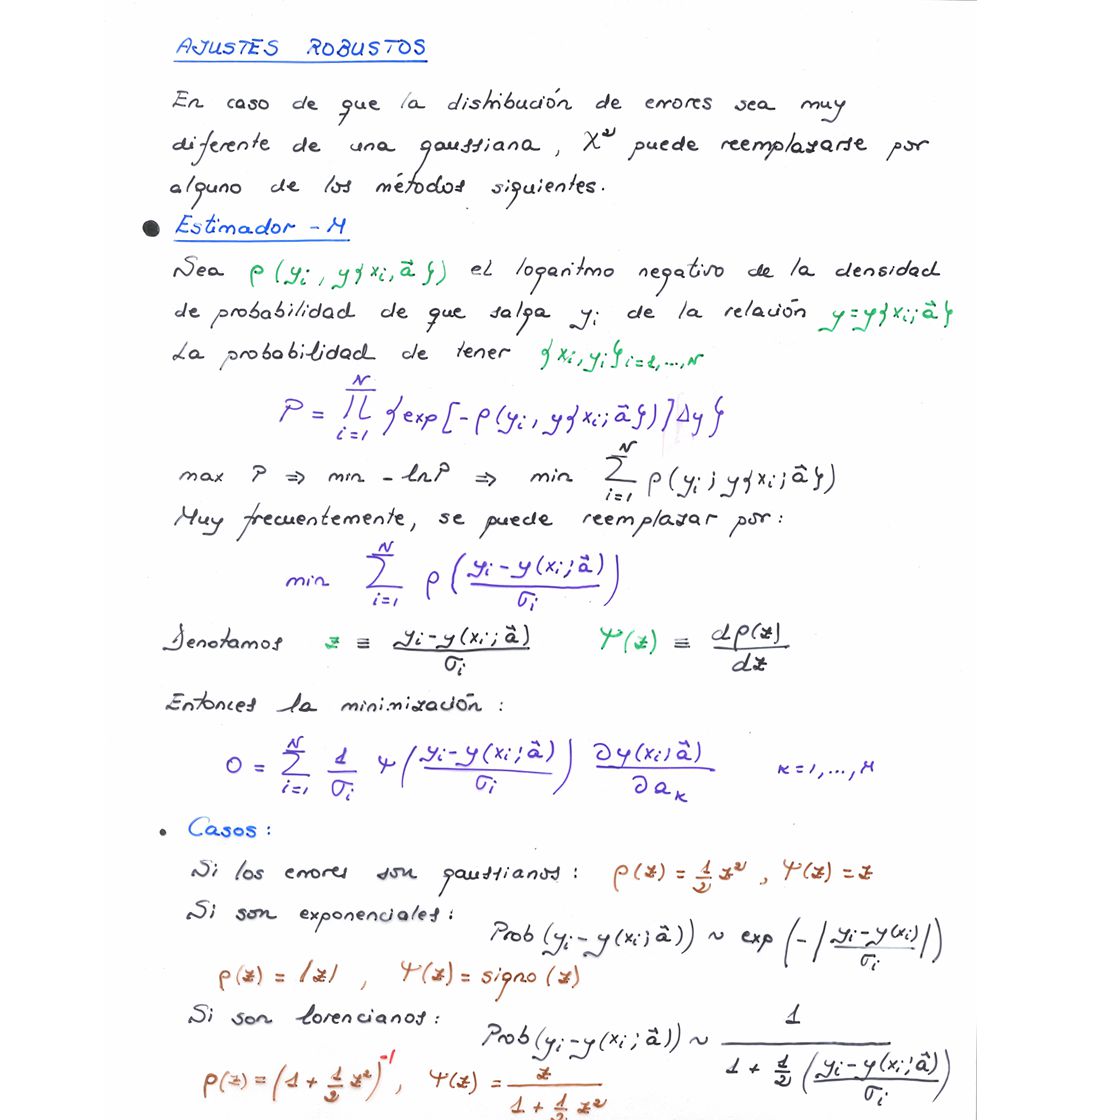 AJUSTES ROBUSTOS
En caso de que la distribución de errores sea muy
diferente de una gaussiana, χ² puede reemplazarse por
alguno de los métodos siguientes.
● Estimador - M
Sea ρ(yi, y{xi, a⃗}) el logaritmo negativo de la densidad
de probabilidad de que salga yi de la relación y=y{xi; a⃗}
La probabilidad de tener {xi, yi}i=1,...,N
P = ∏_{i=1}^{N} {exp[-ρ(yi, y{xi; a⃗})]Δy}
max P ⇒ min - lnP ⇒ min ∑_{i=1}^{N} ρ(yi; y{xi; a⃗})
Muy frecuentemente, se puede reemplazar por:
min ∑_{i=1}^{N} ρ((yi - y(xi; a⃗))/σi)
Denotamos z ≡ (yi - y(xi; a⃗))/σi Ψ(z) ≡ dρ(z)/dz
Entonces la minimización:
0 = ∑_{i=1}^{N} 1/σi Ψ((yi - y(xi; a⃗))/σi) ∂y(xi; a⃗)/∂aκ κ=1,...,M
• Casos:
Si los errores son gaussianos: ρ(z) = 1/2 z², Ψ(z) = z
Si son exponenciales: Prob(yi - y(xi; a⃗)) ~ exp(-|(yi - y(xi))/σi|)
ρ(z) = |z|, Ψ(z) = signo(z)
Si son lorencianos: Prob(yi - y(xi; a⃗)) ~ 1/(1 + 1/2((yi - y(xi; a⃗))/σi)
ρ(z) = (1 + 1/2 z²)^-1, Ψ(z) = z/(1 + 1/2 z²)